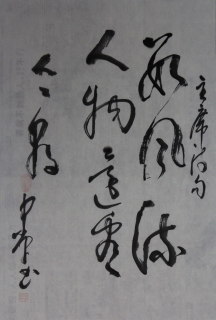 主席诗句
数风流
人物还看
今朝